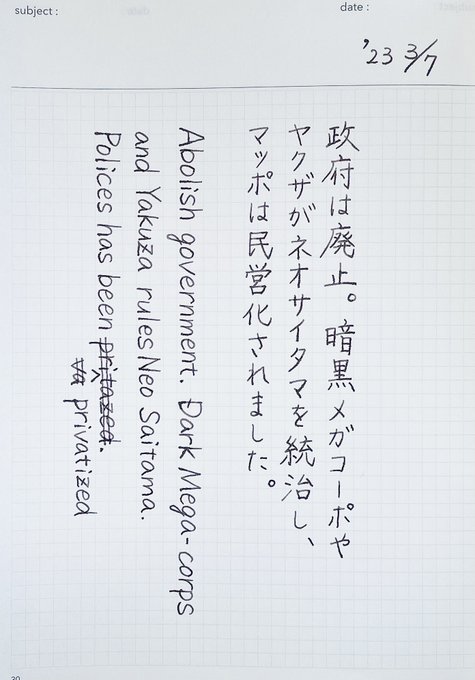 subject :
date :
'23 3/7
政府は廃止。暗黒メガコーポや
ヤクザがネオサイタマを統治し、
マッポは民営化されました。
Abolish government. Dark Mega-corps
and Yakuza rules Neo Saitama.
Polices has been pritazed.
va privatized
20